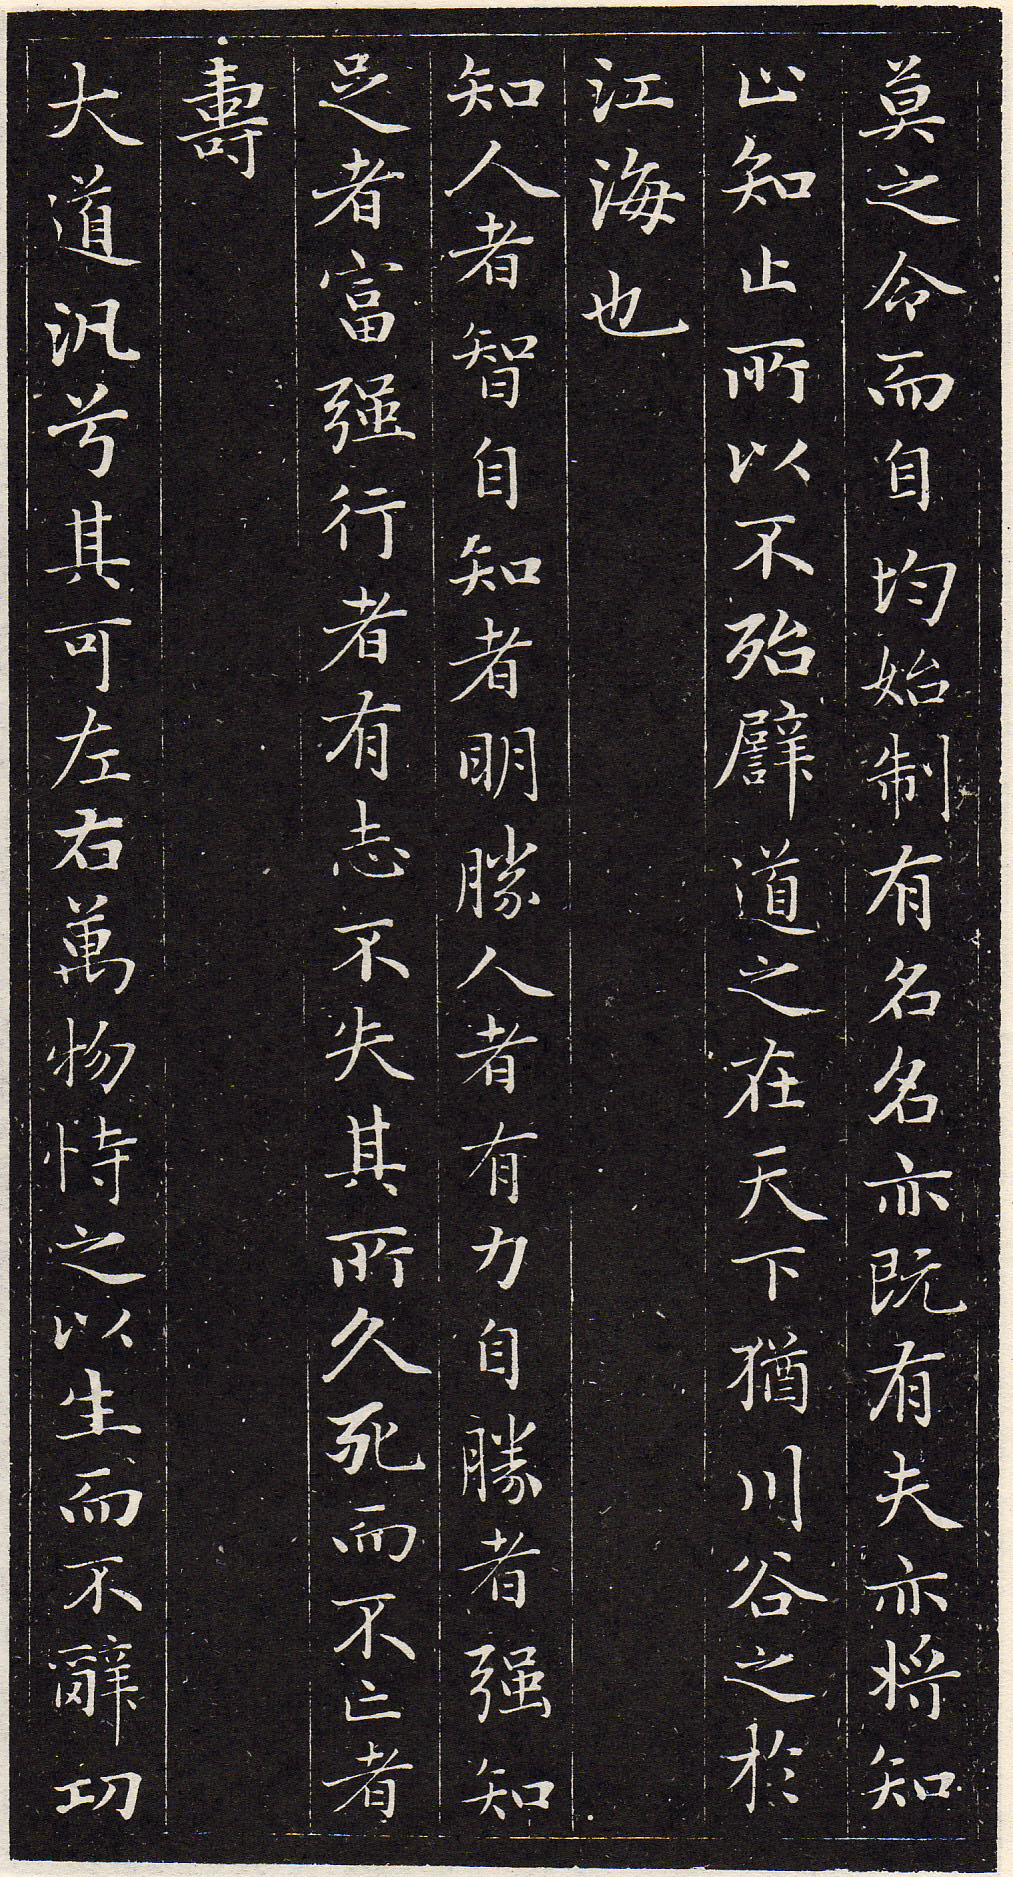 莫之令而自均始制有名名亦既有夫亦將知
止知止所以不殆譬道之在天下猶川谷之於
江海也
知人者智自知者明勝人者有力自勝者强知
足者富强行者有志不失其所久死而不亡者
壽
大道汎兮其可左右萬物恃之以生而不辭功